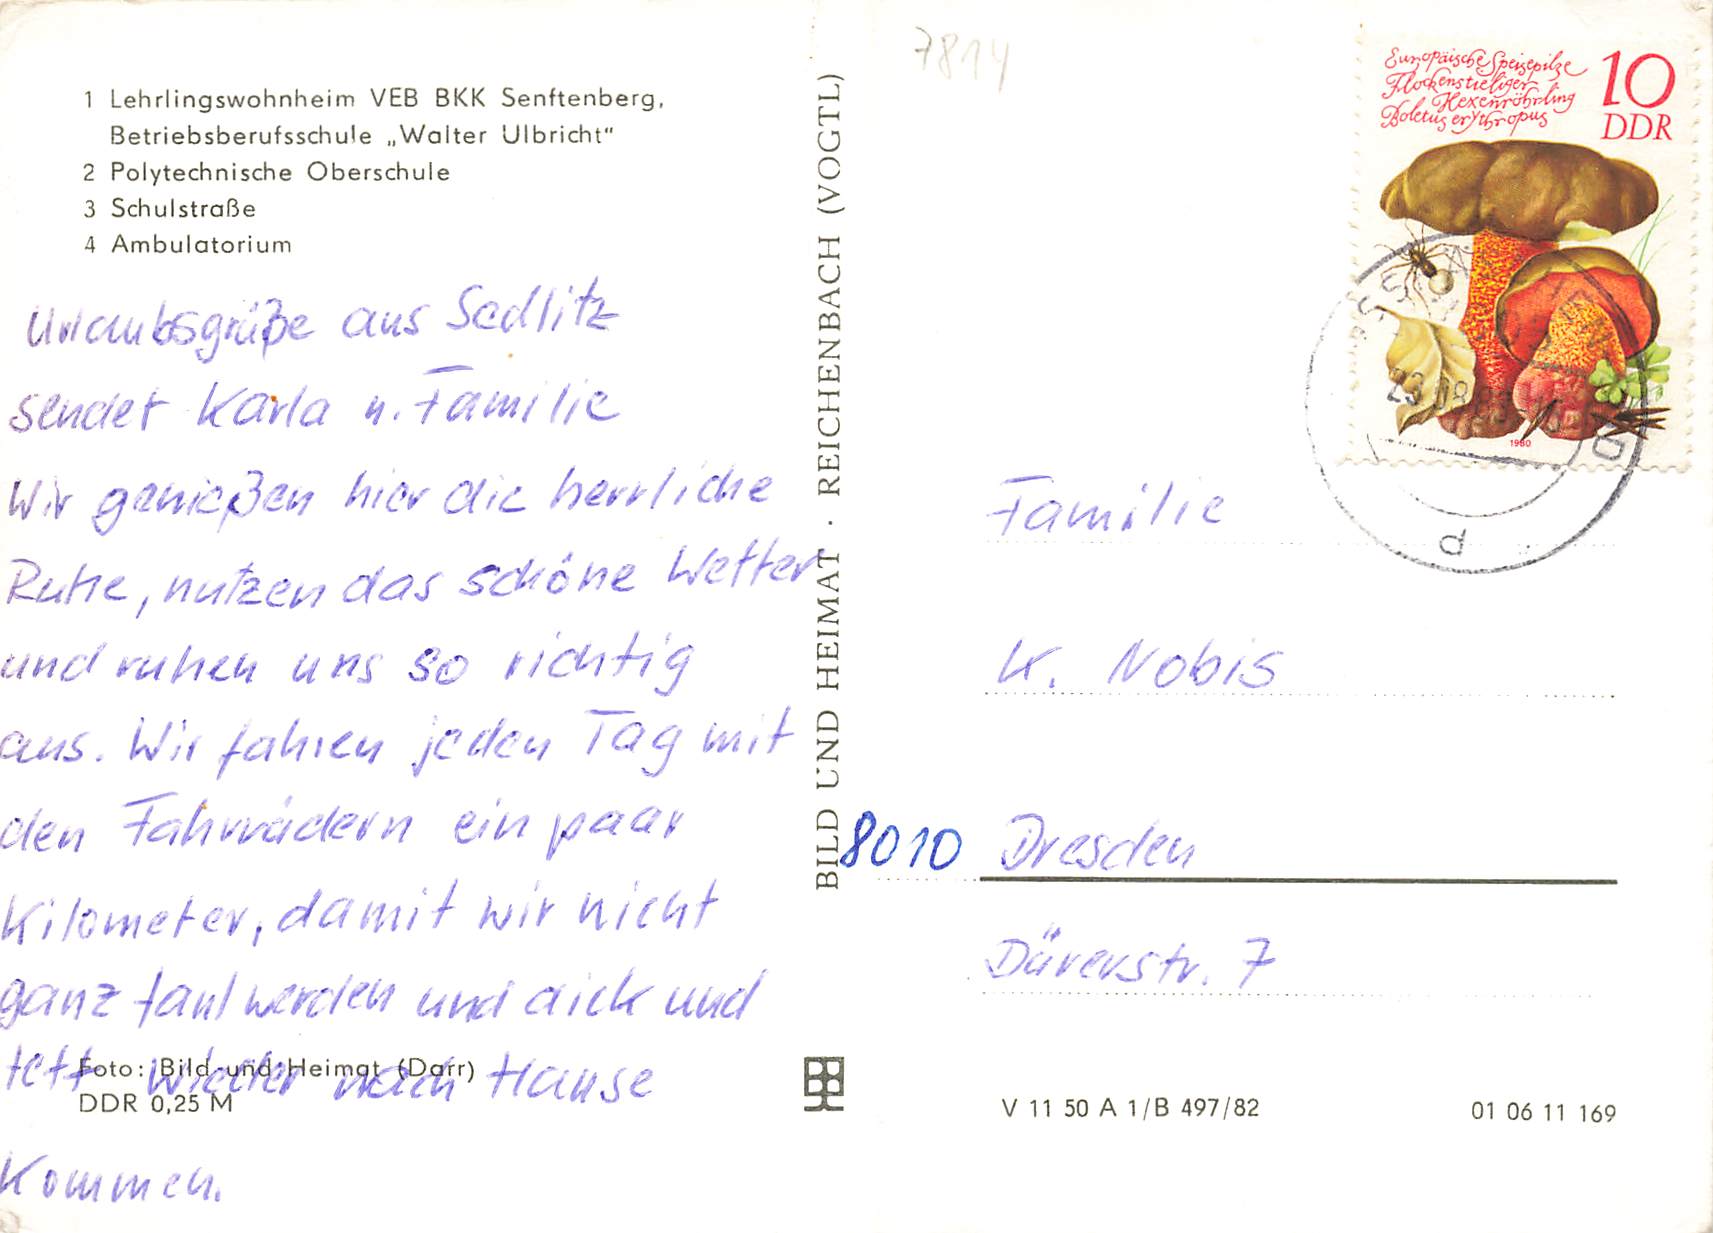 1 Lehrlingswohnheim VEB BKK Senftenberg,
Betriebsberufsschule „Walter Ulbricht“
2 Polytechnische Oberschule
3 Schulstraße
4 Ambulatorium
Urlaubsgrüße aus Sedlitz
sendet Karla u. Familie
Wir genießen hier die herrliche
Ruhe, nutzen das schöne Wetter
und ruhen uns so richtig
aus. Wir fahren jeden Tag mit
den Fahrrädern ein paar
Kilometer, damit wir nicht
ganz faul werden und dick und
fett wieder nach Hause
Kommen.
Foto: Bild und Heimat (Darr)
DDR 0,25 M
BILD UND HEIMAT · REICHENBACH (VOGTL)
7814
Europäische Speisepilze
Flockenstieliger
Hexenröhrling
Boletus erythropus
10
DDR
1980
d
Familie
K. Nobis
8010 Dresden
Dürerstr. 7
V 11 50 A 1/B 497/82
01 06 11 169